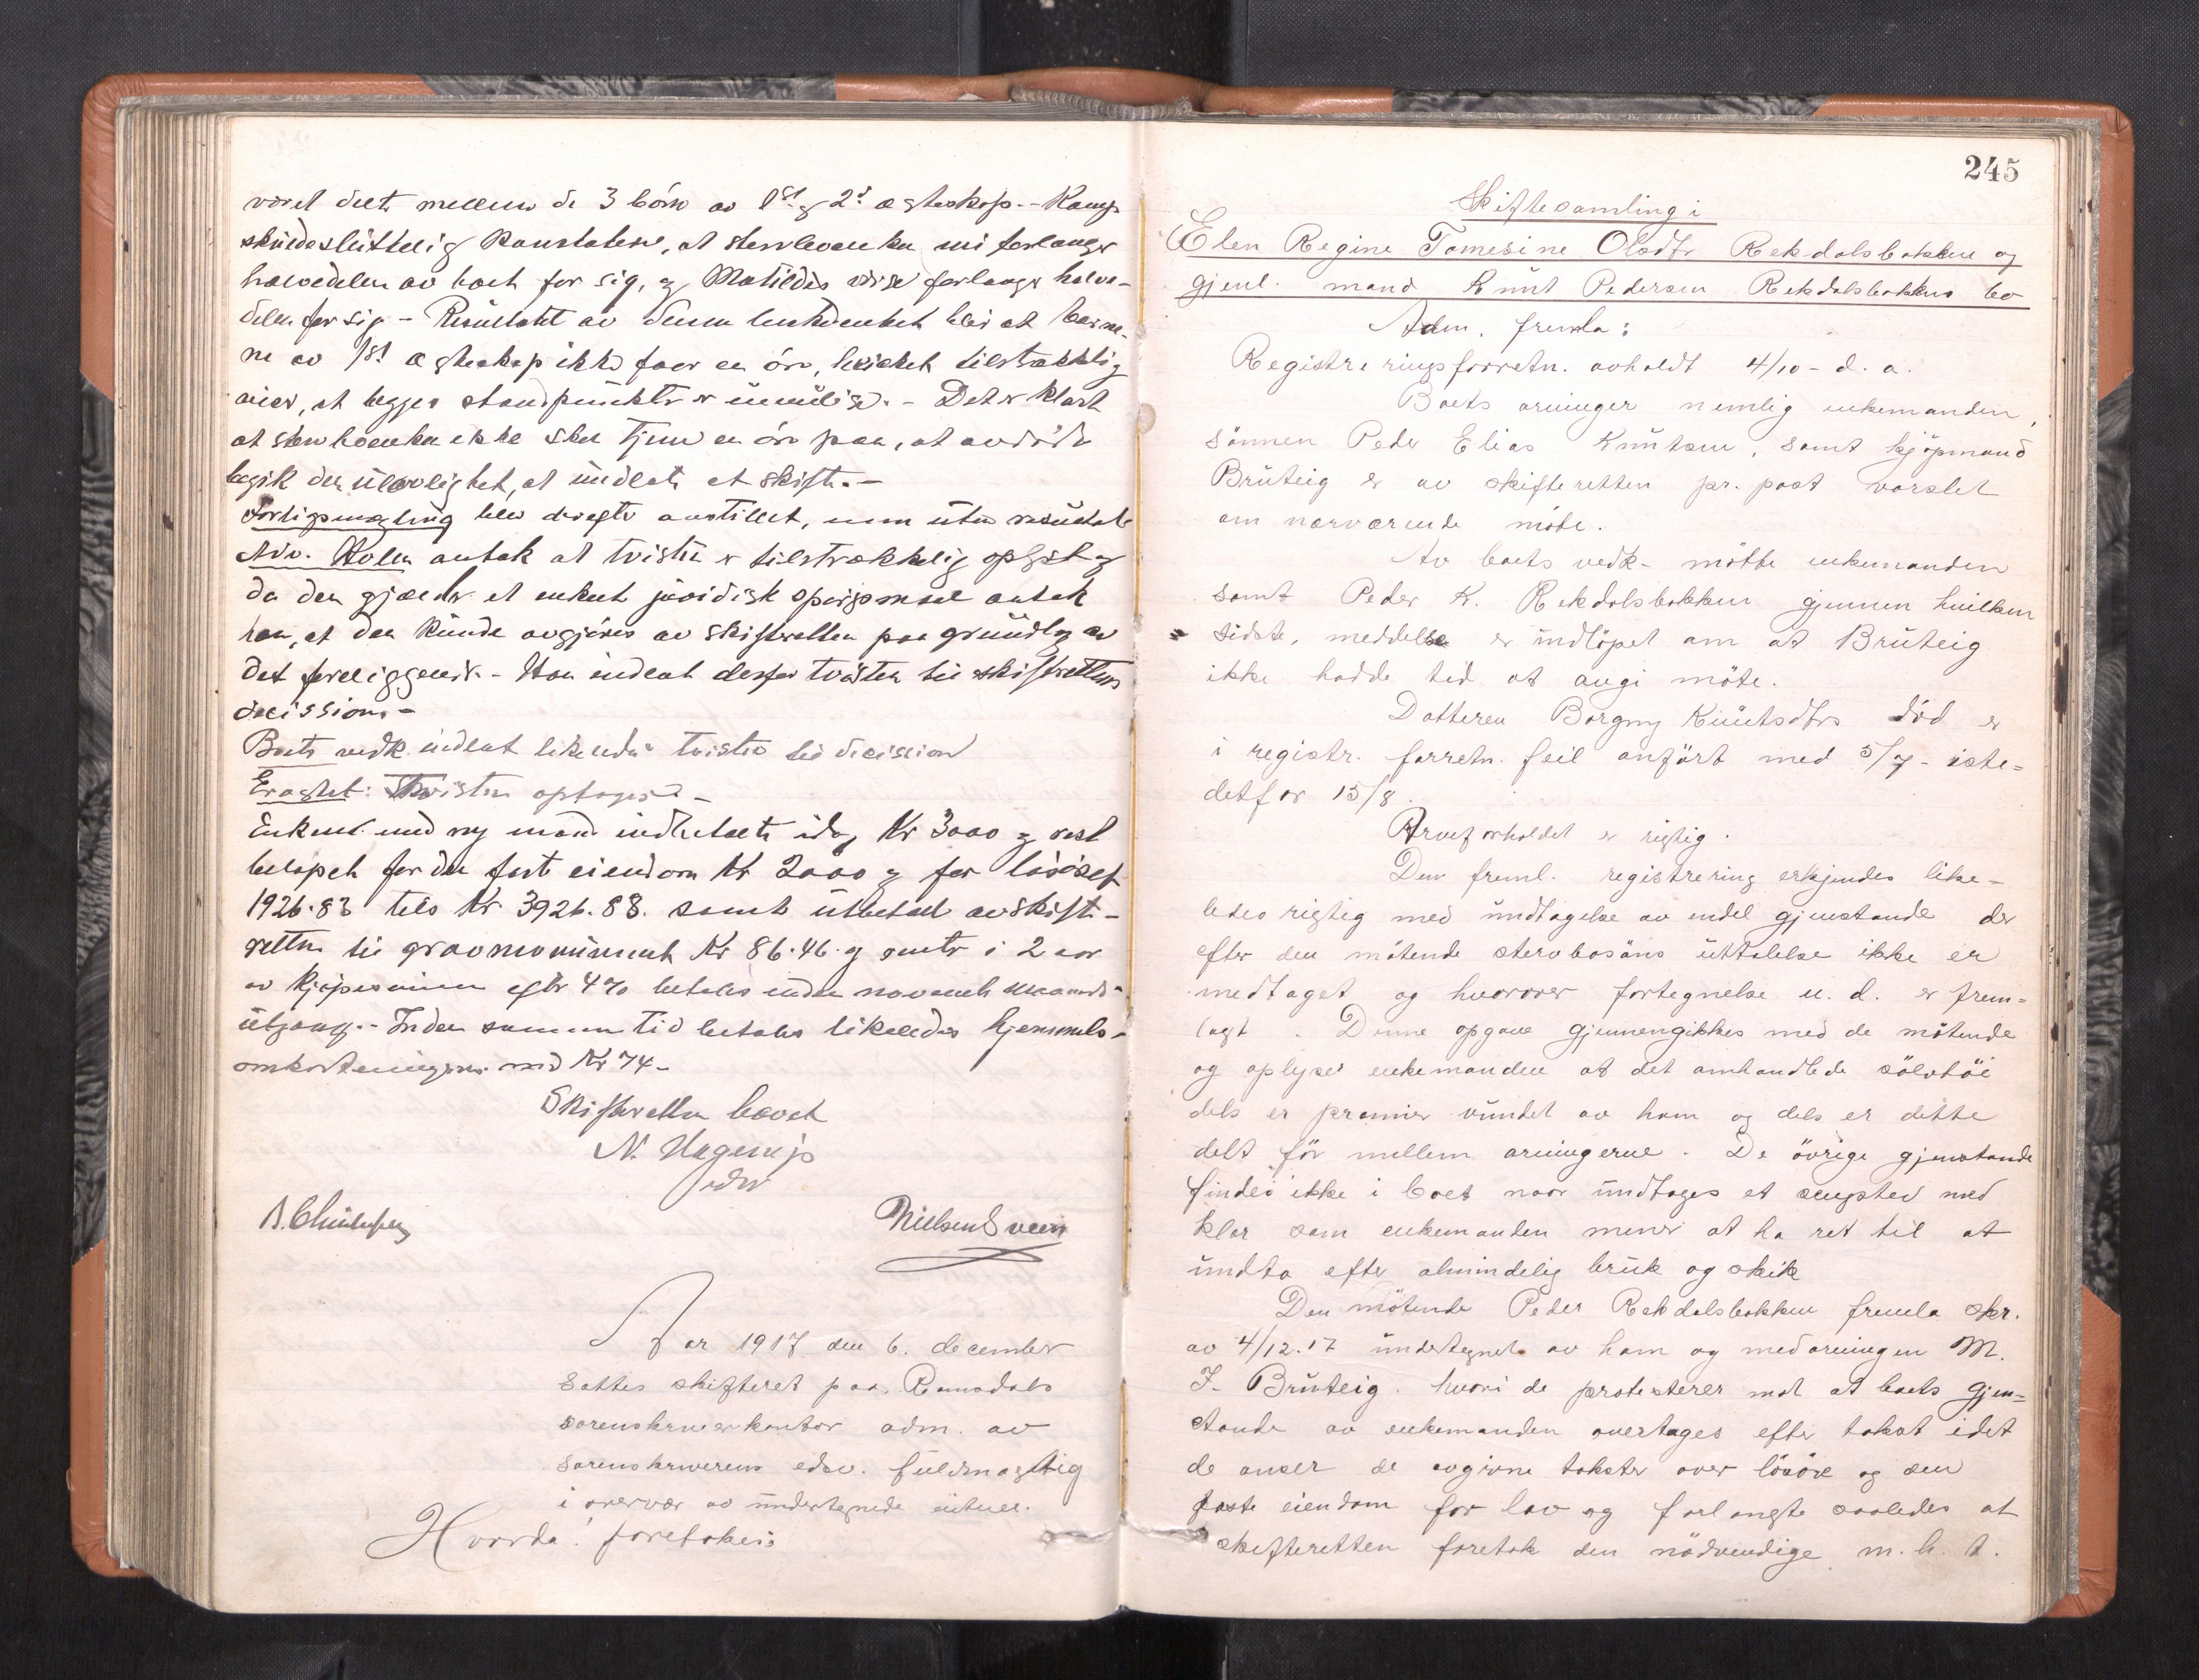 været delt mellem de 3 børn av 1st og 2d ægteskap. - Kamp
skuldesluttelig konstatere, at stervboenken nu forlanger
halvedelen av boet for sig, og Matildes værge forlanger halve-
delen for sig - Resultatet av denne blir at barne-
ne av 1st ægteskap ikke faar en øre, hvilket tilstrækkelig
viser, at begges standpunkter er umulige. - Det er klart
at stervboenken ikke skal tjene en øre paa, at avdøde
begik den ulovlighet, at undlate et skifte. -
Forligsmægling blev derefter anstillet, men uten resultat
Adv. Holm antok at tvisten er tilstrækkelig oplyst og
da den gjælder et enkelt juridisk spørgsmaal antok
han, at den kunde avgjøres av skifteretten paa grundlag av
det foreliggende. - Han indlot derfor tvisten til skifterettens
decission. -
Boets vedk. indlot likeledes tvisten til decision
Eragtet: Tvisten optages. -
Enkens med ny mand indbetalte idag Kr 3000 og rest
beløpet for den fast eiendom Kr 2000 og for løsøret
1926.83 tils Kr. 3926.83. samt utbetalt av skifte-
retten til gravmonument Kr 86.46. og renter i 2 aar
av kjøpesummen efter 4% betales inden november maaneds
utgang. - Inden samme tid betales likeledes hjemmels-
omkostningerne med Kr 74 -
Skifteretten hævet
N. Hagerup
edsv
Nielsen Sveen
Aar 1917 den 6. december
sattes skifteret paa Romsdals
sorenskriverkontor adm. av
sorenskriverens edsv. fuldmægtig
i overvær av undertegnede vitner.
Hvorda! foretokes:
245
Skiftesamling i
Elen Regine Tomesine Olsdtr Rekdalsbakken og
gjenl. mand Knut Pedersen Rekdalsbakkens bo
Adm. fremla:
Registreringsforretn. avholdt 4/10 - d. a.
Boets arvinger nemlig enkemanden,
sønnen Peder Elias Knutsen, samt kjøpmand
Bruteig er av skifteretten pr. post varslet
om nærværende møte.
Av boets vedk. møtte enkemanden
samt Peder K. Rekdalsbakken gjennem hvilken
sidste, meddelse er indløpet om at Bruteig
ikke hadde tid at angi møte.
Datteren Borgny Knutsdtrs død er
i registr. forretn. feil anført med 5/7 - iste=
detfor 15/8.
Arveforholdet er rigtig.
Den freml. registrering erkjendes like-
ledes rigtig med undtagelse av endel gjenstande der
efter den møtende stervbosøns uttalelse ikke er
medtaget og hvorover fortegnelse u. d. er frem=
lagt. Denne opgave gjennengikkes med de møtende
og oplyser enkemanden at det omhandlede sølvtøi
dels er præmier vundet av ham og dels er dette
delt før mellem arvingerne. De øvrige gjenstande
findes ikke i boet naar undtages et sengsted med
klær som enkemanden mener at ha ret til at
undta efter almindelig bruk og skik
Den møtende Peder Rekdalsbakken fremla skr.
av 4/12.17 undertegnet av ham og medarvingen M.
J. Bruteig. hvori de protesterer mot at boets gjen=
stande av enkemanden overtages efter takst idet
de anser de avgivne takster over løsøre og den
faste eiendom for lav og forlangte saaledes at
skifteretten foretok den nødvendige m. h. t.